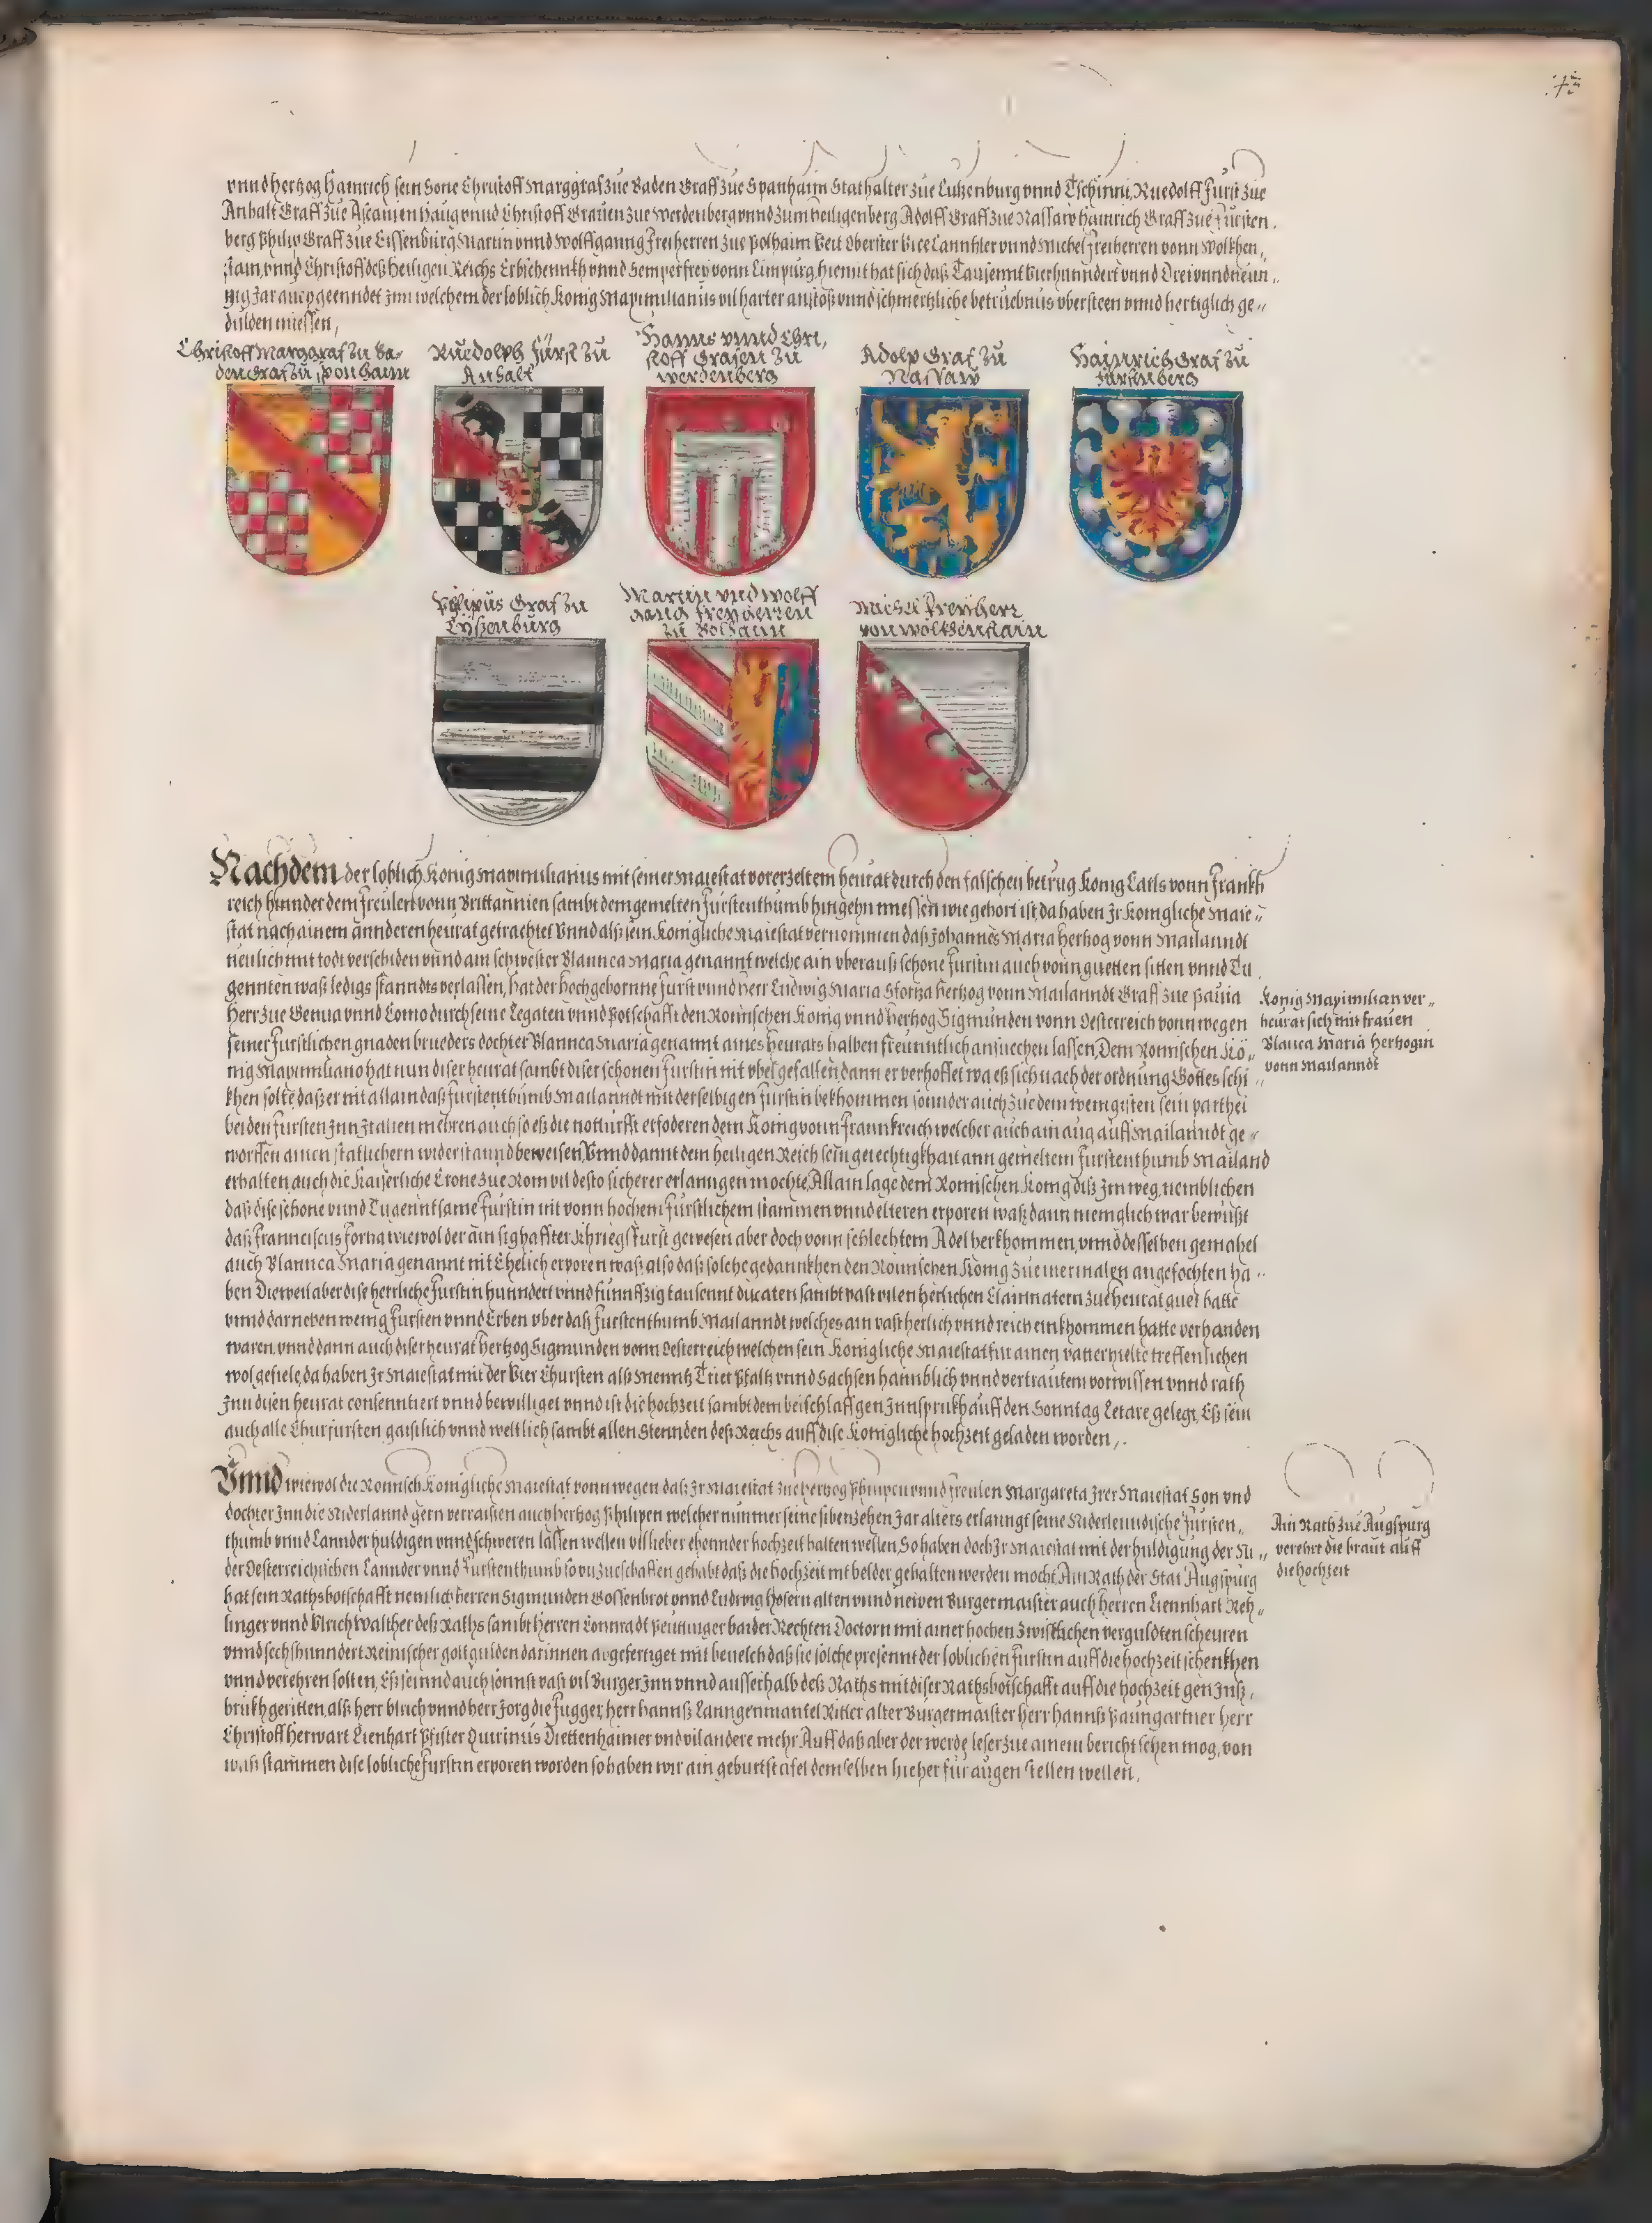 vnnd Hertzog Hainrich sein Sone Christoff Marggraf zue Baden Graff zue Spanhaim Stathalter zue Lutzenburg vnnd Tschinni, Ruedolff Furst zue
Anhalt Graff zue Ascanien Haug vnnd Christoff Grauen zue Werdenberg vnnd zum heiligenberg, Adolff Graff zue Nassaw Hainrich Graff zue Fursten,
berg Philip Graff zue Eissenburg Martin vnnd Wolffganng Freiherren zue Polhaim Veit Oberster Vice Canntzler vnnd Michel Freiherren vonn Wolkhen,,
stain, vnnd Christoff deß Heiligen Reichs Erbschennkh vnnd Semperfrey vonn Limpurg, hiemit hat sich daß Tausennt Vierhunndert vnnd Dreiunndneun,,
zig Jar auch geenndet Jnn welchem der loblich Konig Maximilianus vil harter anstöß vnnd schmertzliche betruebnus vbersteen vnnd hertiglich ge,,
dulden miessen,
Christoff Marggraf zu Ba-
den Graf zu Sponhaim
Ruedolph Fürst zu
Anhalt
Hanns vnnd Chri,
stoff Grafen zu
Werdenberg
Adolp Graf zu
Nassaw
Hainrich Graf zu
Fürstenberg
Philipus Graf zu
Eyßenburg
Martin vnd Wolff
gang Freyherren
zu Bolhaim
Michel Freyherr
von Wolkhenstain
Nachdem der loblich Konig Maximilianus mit seiner Maiestat vorerzeltem heurat durch den falschen betrug Konig Carls vonn Frankh
reich hinnder dem Freulen vonn Brittannien sambt dem gemelten Furstenthumb hingehn miessen wie gehort ist, da haben Jr Konigliche Maie,,
stat nach ainem annderen heurat getrachtet Vnnd alß sein Konigliche Maiestat vernommen daß Johannes Maria Hertzog vonn Mailanndt
neulich mit todt verschiden vnnd ain schwester Blannca Maria genannt welche ain vberauß schone Furstin auch vonn guetten sitten vnnd Tu,
gennten waß ledigs stanndts verlassen, hat der Hochgebornne Furst vnnd Herr Ludwig Maria Stortza Hertzog vonn Mailanndt Graff zue Pauia
Herr zue Genua vnnd Como durch seine Legaten vnnd Potschafft den Romischen Konig vnnd Hertzog Sigmunden vonn Oesterreich vonn wegen
seiner Furstlichen gnaden brueders dochter Blannca Maria genannt aines heurats halben freunntlich ansuechen lassen, Dem Romischen Kö,,
nig Maximiliano hat nun diser heurat sambt diser schonen Furstin nit vbel gefallen, dann er verhoffet wa eß sich nach der ordnung Gottes schi,,
khen solte daß er nit allain daß Furstenthumb Mailanndt mit derselbigen Furstin bekhommen sonnder auch zue dem wenigisten sein parthei
bei den Fursten Jnn Jtalien mehren auch so eß die notturfft erfoderen dem Konig vonn Frannkreich welcher auch ain aug auff Mailanndt ge,,
worffen ainen statlichern widerstannd beweisen, Vnnd dannt dem heiligen Reich sein gerechtigkhait ann gemeltem Furstenthumb Mailand
erhalten, auch die Kaiserliche Crone zue Rom vil desto sicherer erlanngen mochte, Allain lage dem Romischen Konig diß Jm weg, nemblichen
daß dise schone vnnd Tugenntsame Furstin nit vonn hochem Furstlichem stammen vnnd elteren erporen waß, dann menigklich war bewüßt
daß Franciscus Fortia wiewol der ain sighaffter Khriegs Furst gewesen aber doch vonn schlechtem Adel herkhommen, vnnd desselben gemahel
auch Blannca Maria genannt nit Ehelich erporen waß, also daß solche gedannkhen den Romischen Konig zue mermalen angefochten ha,,
ben Dieweil aber dise herrliche Furstin hunndert vnnd funnffzig tausennt ducaten sambt vast vilen herlichen Clainnatern zue heurat guet hatte
vnnd darneben wenig Fursten vnnd Erben vber daß Furstenthumb Mailanndt welches ain vast herlich vnnd reich einkhommen hatte verhanden
waren, vnnd dann auch diser heurat Hertzog Sigmunden vonn Oesterreich welchen sein Konigliche Maiestat fur ainen vatter hielte treffenlichen
wol gefiele, da haben Jr Maiestat mit der Vier Chursten alß Menntz Trier Pfaltz vnnd Sachsen haimblich vnnd vertrautem vorwissen vnnd rath
Jnn disen heurat consenntiert vnnd bewilliget vnnd ist die hochzeit sambt dem beischlaff gen Jnnsprukh auff den Sonntag Letare gelegt, Eß sein
auch alle Churfursten gaistlich vnnd weltlich sambt allen Stennden deß Reichs auff dise Konigliche hochzeit geladen worden,.
König Maximilian ver,,
heurat sich mit frauen
Blanca Maria Hertzogin
vonn Mailanndt
Vnnd wiewol die Romisch Konigliche Maiestat vonn wegen daß Jr Maiestat zue Hertzog Philipen vnnd Freulen Margareta Jrer Maiestat Son vnd
dochter Jnn die Niderlannd gern verraisen auch Hertzog Philipen welcher nummer seine sibenzehen Jar alters erlanngt seine Niderlenndische Fursten,
thumb vnnd Lannder huldigen vnnd schweren lassen wellen vil lieber ehennder hochzeit halten wellen, So haben doch Jr Maiestat mit der huldigung der Ni,,
der Oesterreichischen Lannder vnnd Furstenthumb so vil zueschaffen gehabt daß die hochzeit nit belder gehalten werden mocht, Ain Rath der Stat Augspurg
hat sein Rathsbotschafft nemlich Herren Sigmunden Gossenbrot vnnd Ludwig Hosern alten vnnd neiven Burgermaister auch Herren Liennhart Reh,,
linger vnnd Vlrich Walther deß Raths sambt Herren Connradt Peuttinger baider Rechten Doctorn mit ainer hochen zwisklichen verguldten scheuren
vnnd sechshunndert Reinischer goltgulden darinnen abgefertiget mit beuelch daß sie solche presennt der loblichen Furstin auff die hochzeit schenkhen
vnnd verehren solten, Eß seinnd auch sonnst vast vil Burger Jnn vnnd ausserhalb deß Raths mit diser Rathsbotschafft auff die hochzeit gen Jnß,
brukh geritten, alß Herr Vlrich vnnd Herr Jorg die Fugger, Herr Hannß Lanngenmantel Ritter alter Burgermaister Herr Hannß Paungartner Herr
Christoff Herwart Lienhart Pfister Quirinus Diettenhaimer vnd vil andere mehr, Auff daß aber der werde leser zue ainem bericht sehen mog, von
waß stammen dise lobliche Furstin erporen worden so haben wir ain geburtstafel demselben hieher fur augen stellen wellen,
Ain Rath zue Augspurg
verehrt die braut auff
die hochzeit